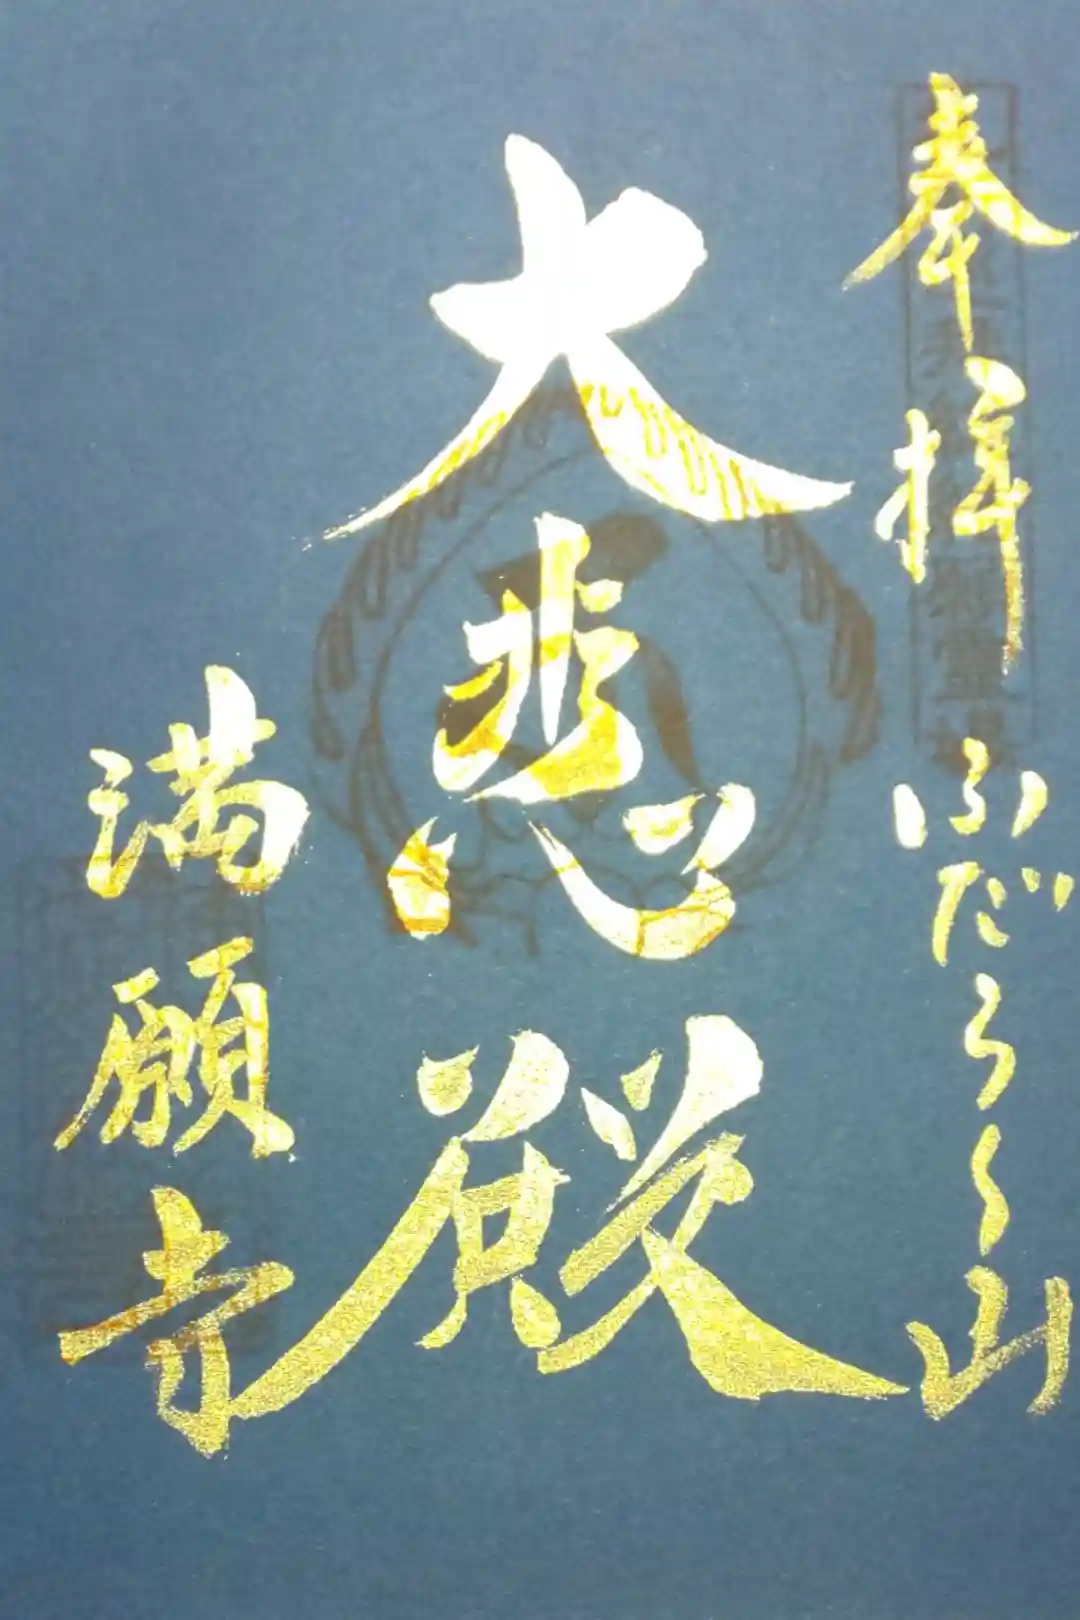 奉拝
ふだらく山
大悲殿
満願寺